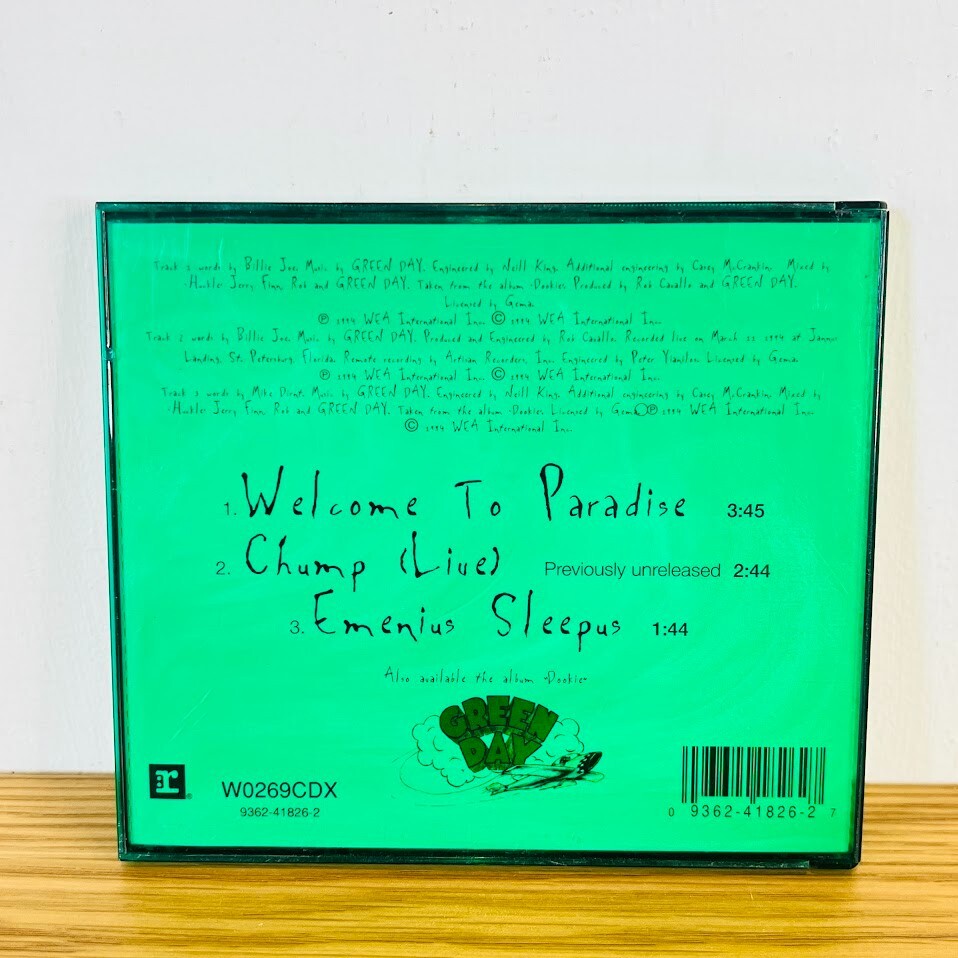 Track 1 words by Billie Joe. Music by GREEN DAY. Engineered by Neill King. Additional engineering by Casey McCrankin. Mixed by
Jerry Finn, Rob and GREEN DAY. Taken from the album "Dookie" Produced by Rob Cavallo and GREEN DAY.
Licensed by Gema.
℗ 1994 WEA International Inc. © 1994 WEA International Inc.
Track 2 words by Billie Joe. Music by GREEN DAY. Produced and Engineered by Rob Cavallo. Recorded live on March 11 1994 at Jannus
Landing, St. Petersburg, Florida. Remote recording by Artisan Recorders, Inc. Engineered by Peter Licensed by Gema.
℗ 1994 WEA International Inc. © 1994 WEA International Inc.
Track 3 words by Mike Dirnt. Music by GREEN DAY. Engineered by Neill King. Additional engineering by Casey McCrankin. Mixed by
Jerry Finn, Rob and GREEN DAY. Taken from the album "Dookie". Licensed by Gema ℗ 1994 WEA International Inc.
© 1994 WEA International Inc.
1. Welcome To Paradise 3:45
2. Chump (Live) Previously unreleased 2:44
3. Emenius Sleepus 1:44
Also available the album "Dookie"
GREEN
DAY
r ®
W0269CDX
9362-41826-2
0 9362-41826-2 7